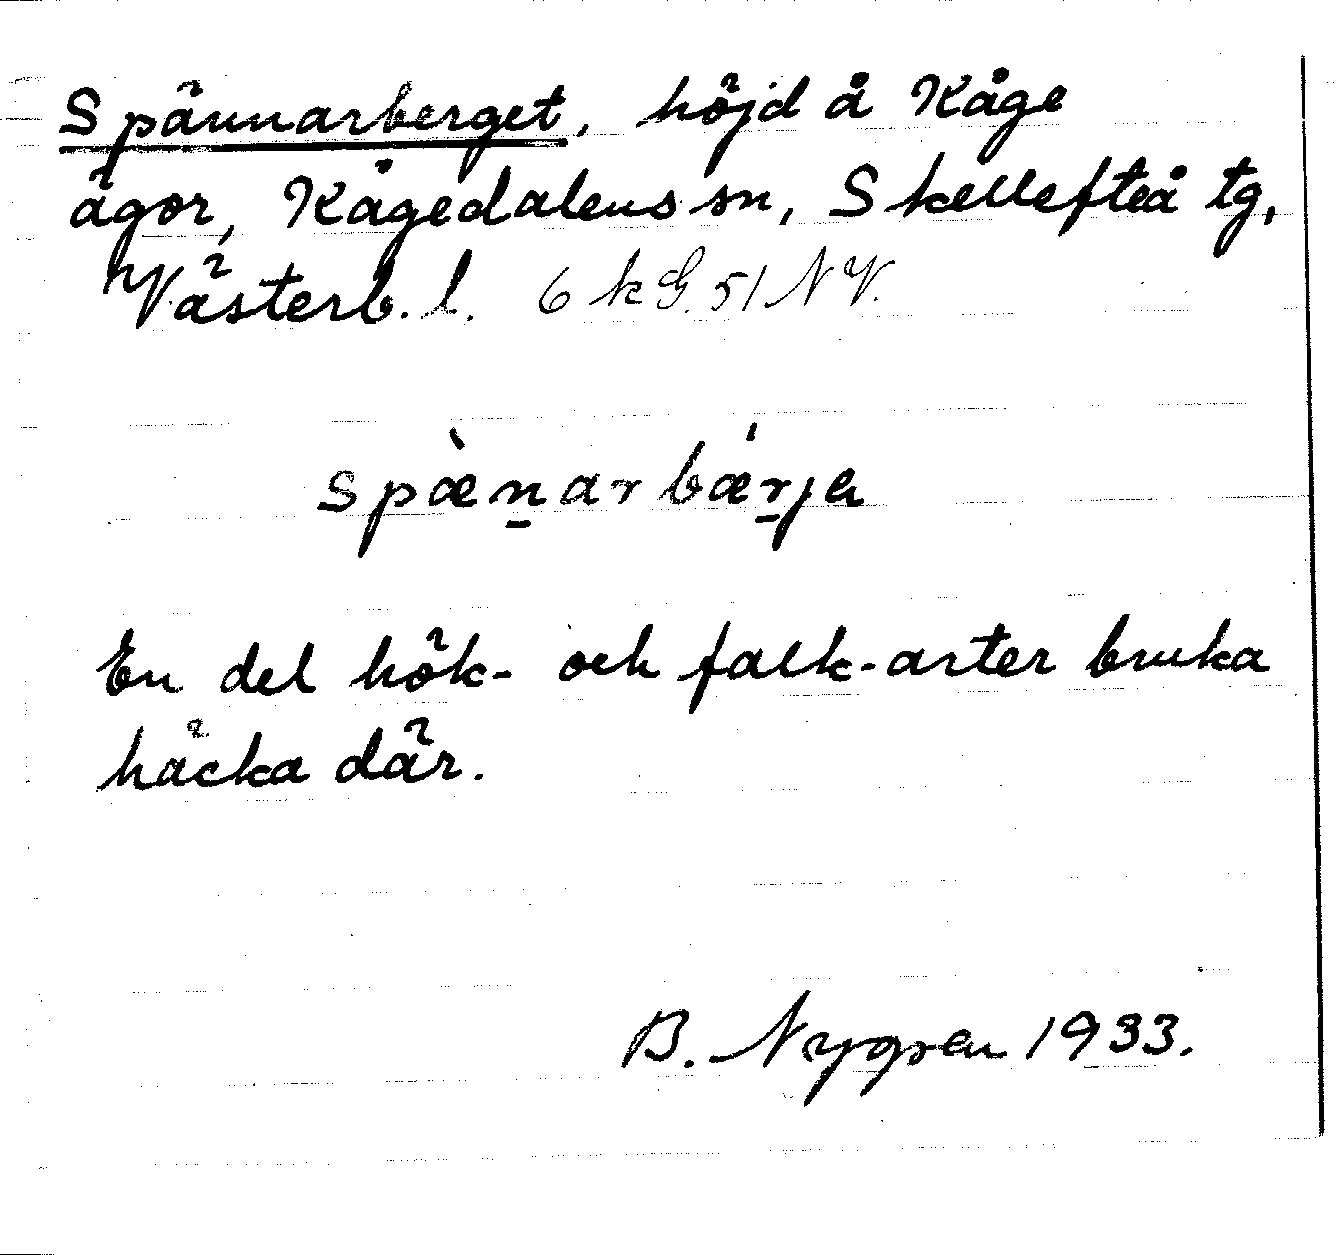 Spännarberget, höjd å Kåge
ägor, Kågedalens sn, Skellefteå tg,
Västerb. l. 6 k G. 51 NV.
spæ̀n̲arbǽr̲ja
En del hök- och falk-arter bruka
häcka där.
B. Nygren 1933.